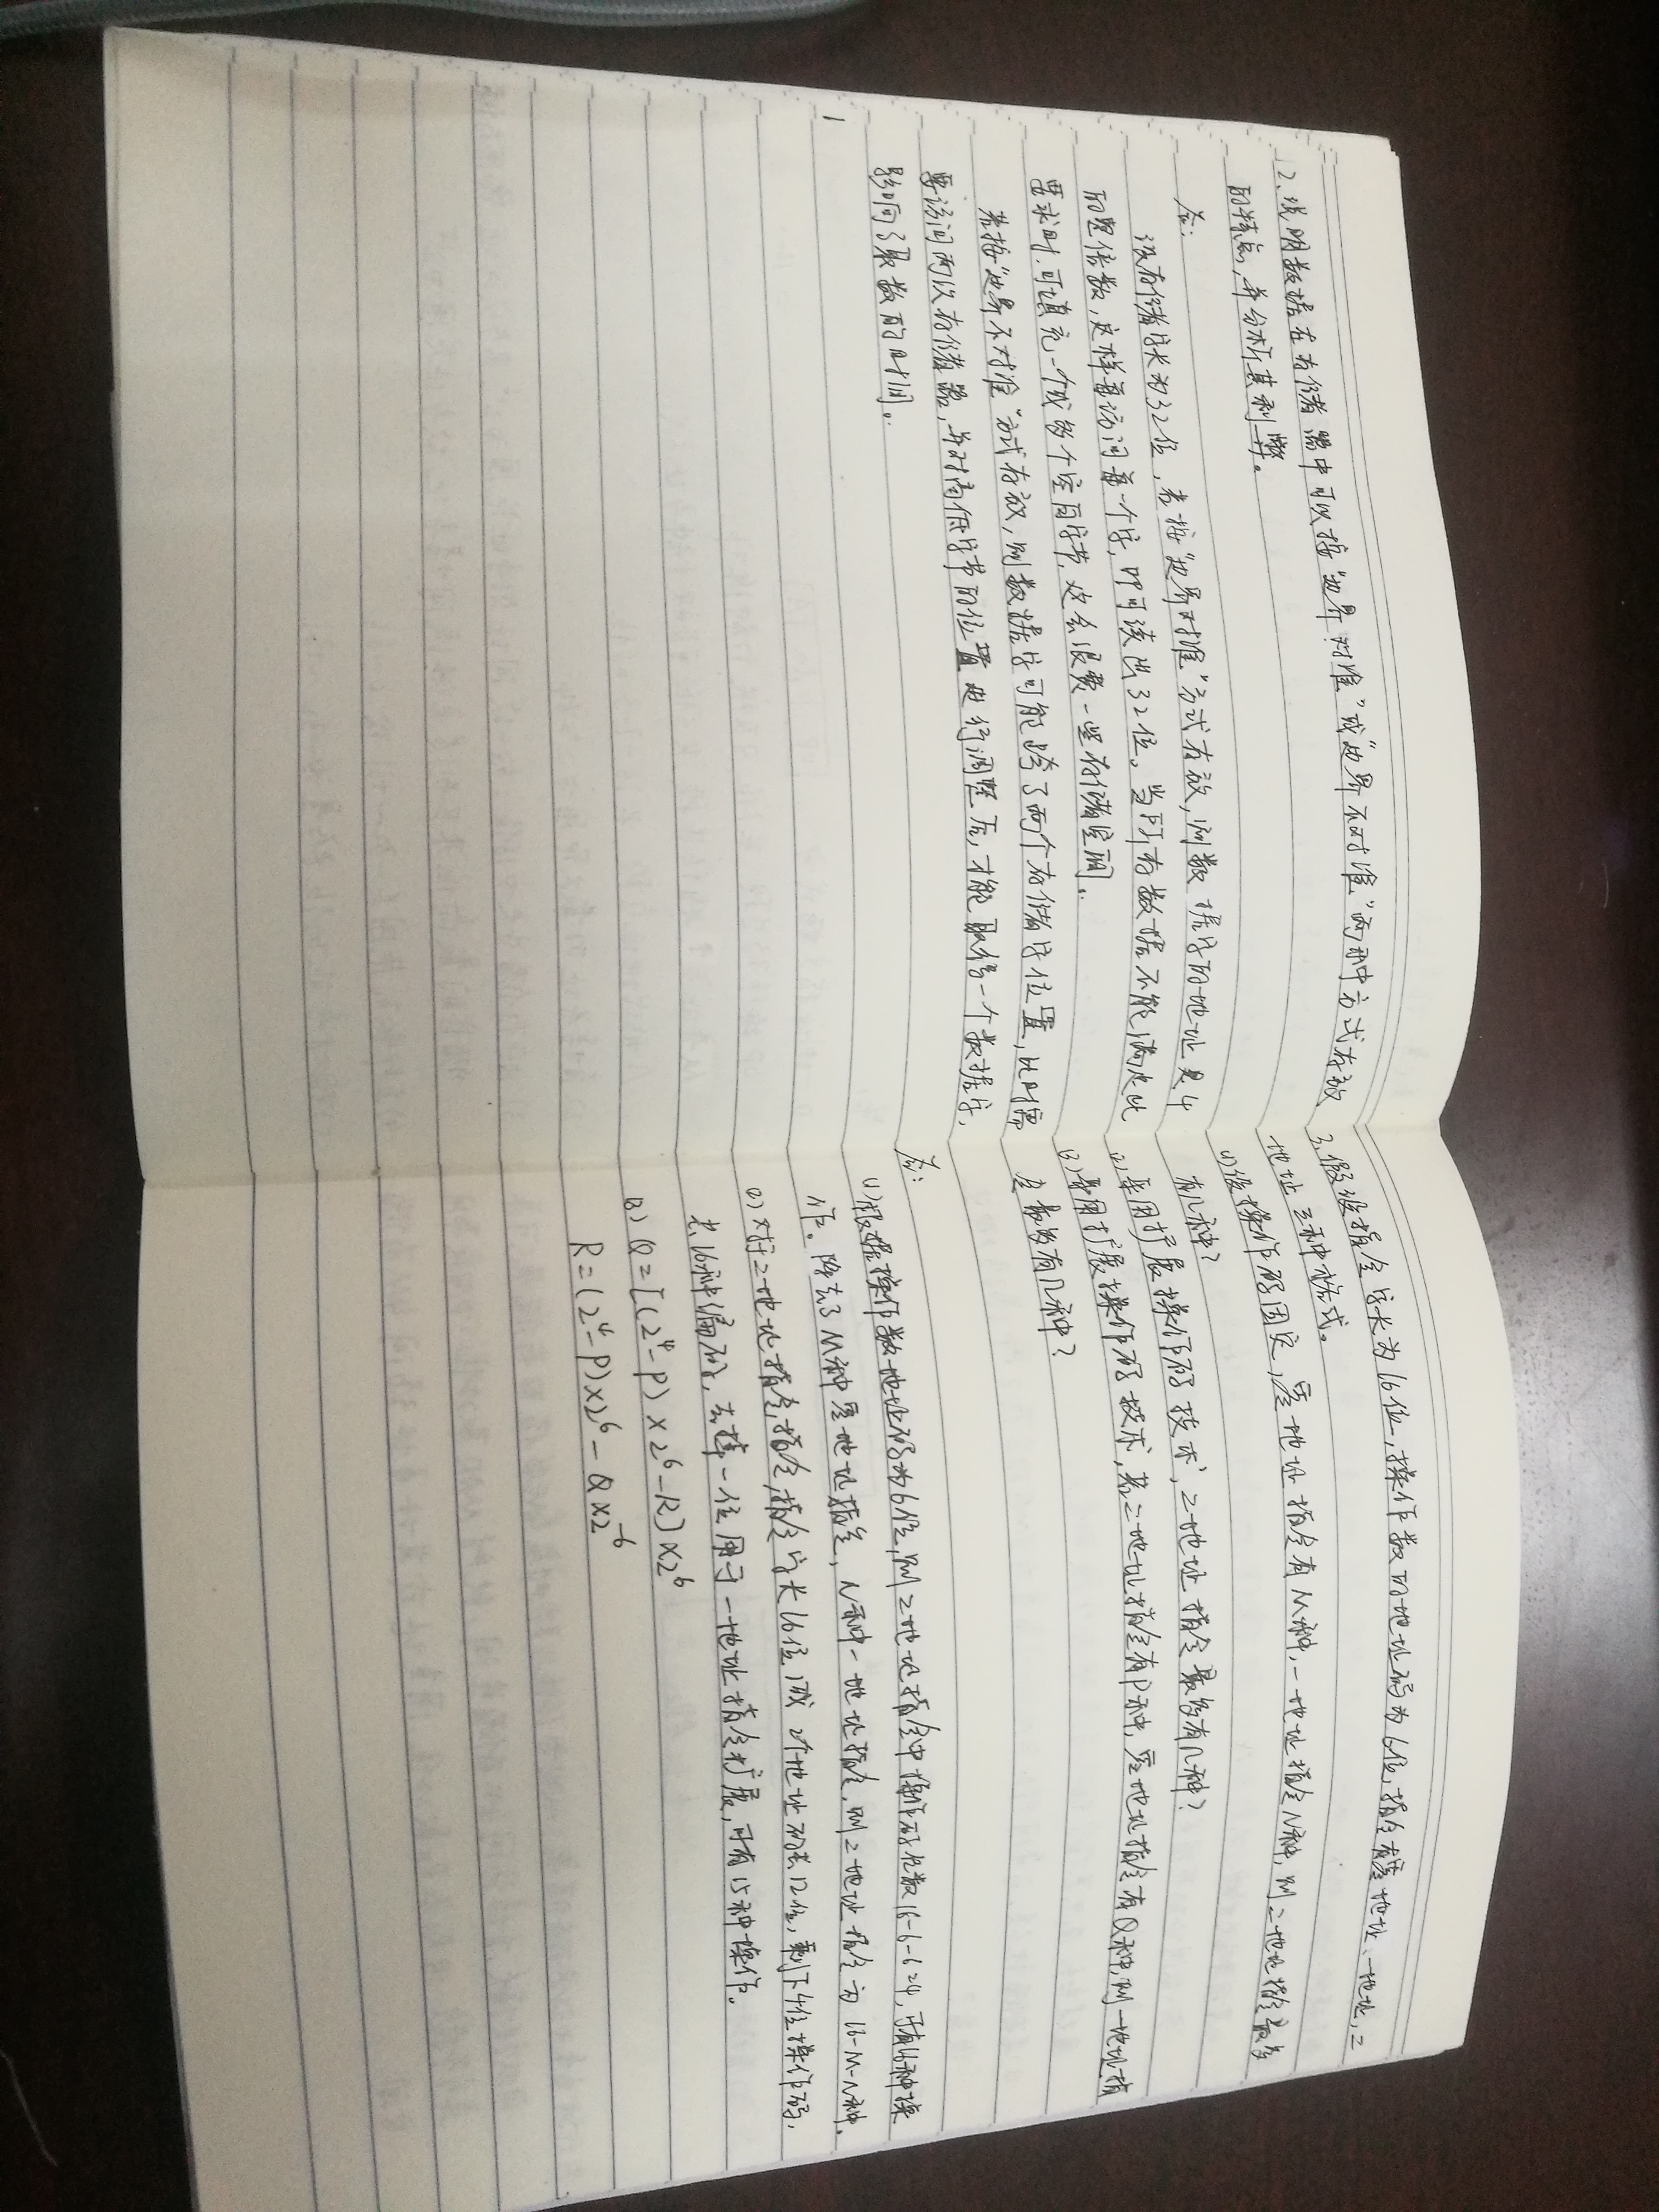 12.说明数据在存储器中可以按“边界对准”或“边界不对准”两种方式存放
的特点,并分析其利弊。
答:
设存储字长为32位,若按“边界对准”方式存放,则数据字的地址是4
的整倍数,这样每访问每一个字,即可读出32位。当所有数据不能满足此
要求时.可填充一个或多个空白字节,这会浪费一些存储空间.
若按“边界不对准”方式存放,则数据字可能跨了两个存储字位置,此时需
要访问两次存储器,并对高低字节的位置进行调整后,才能取得一个数据字,
影响了取数的时间.
1
3.假设指令字长为16位,操作数的地址码为6位,指令有零地址、一地址,二
地址三种格式。
(1)设操作码固定,零地址指令有M种,一地址指令N种,则二地址指令最多
有几种?
(2)采用扩展操作码技术,二地址指令最多有几种?
(3)采用扩展操作码技术,若二地址指令有P种,零地址指令有Q种,则一地址指
令最多有几种?
答:
(1)根据操作数地址码为6位,则二地址指令中操作码位数16-6-6=4,可有16种操
作。除去了M种零地址指令,N种一地址指令,则二地址指令为16-M-N种.
(2)对于二地址指令,指令,指令字长16位减2个地址码共12位,剩下4位操作码,
共16种编码,去掉一位用于一地址指令扩展,可有15种操作.
(3) Q=[(2⁴-P)×2⁶-R]×2⁶
R=(2⁴-P)×2⁶-Q×2⁻⁶